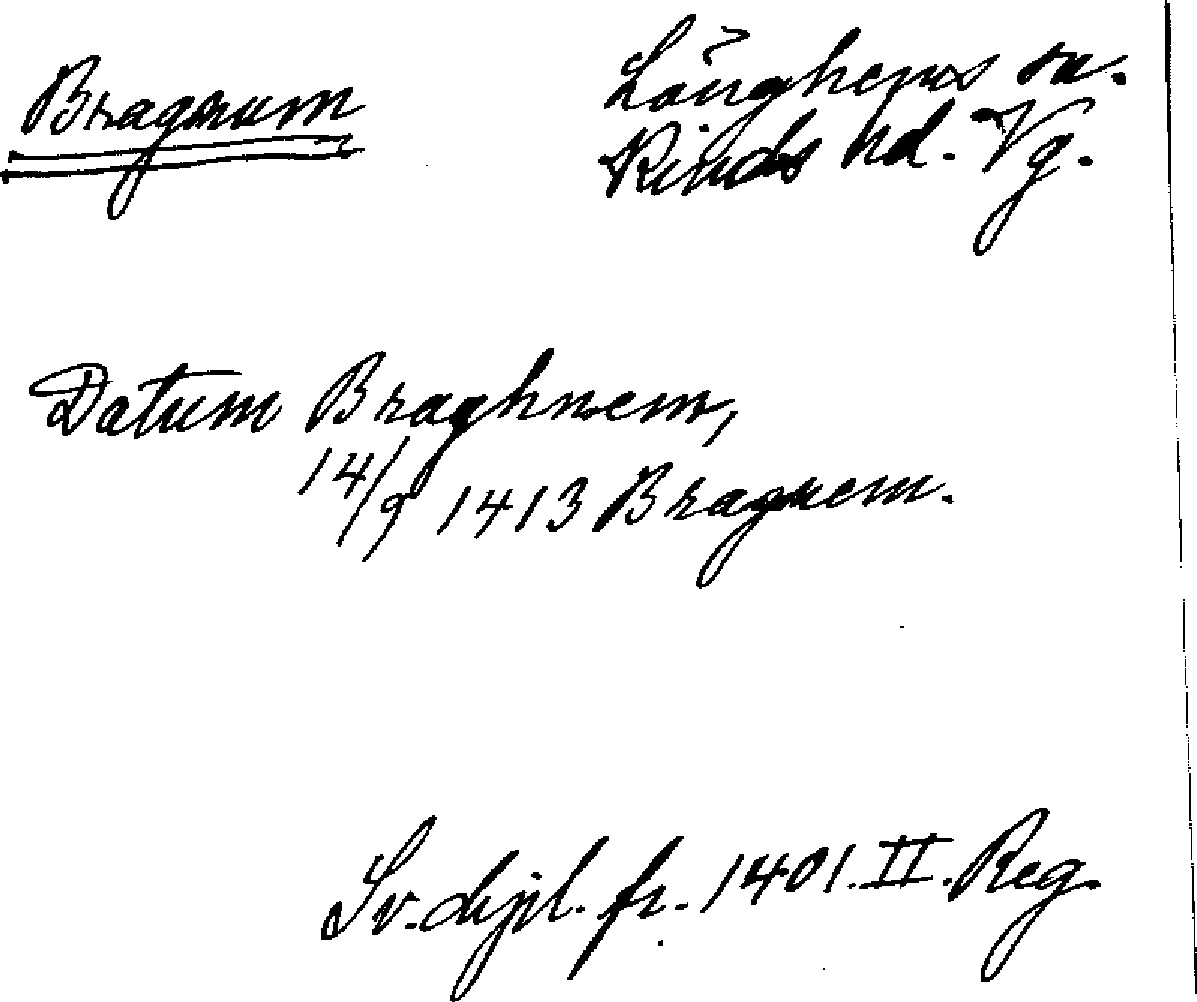 Bragnum
Länghems sn.
Kinds hd. Vg.
Datum Braghnem,
14/9 1413 Bragnem.
Sv. dipl. fr. 1401. II. Reg.